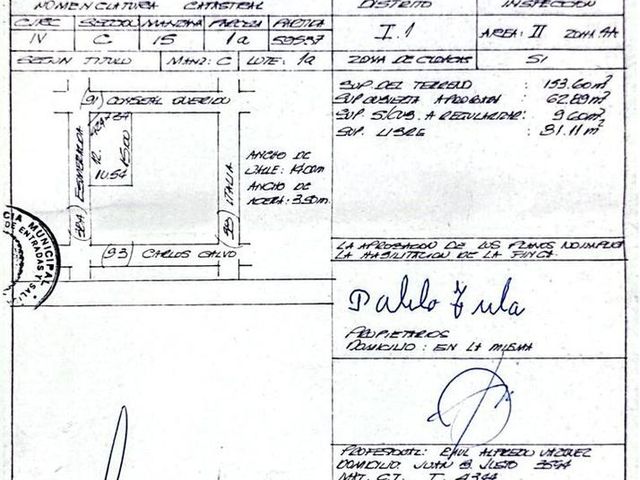 NOMENCLATURA CATASTRAL
DISTRITO
INSPECCION
CIRC SECCION MANZANA PARCELA PARTIDA
IV C 15 1a
I.1
AREA: II ZONA
SEGUN TITULO MANZ: C LOTE: 1a
ZONA DE CLOACAS SI
(91) CONSEJAL QUERIDO
ESMERALDA
ITALIA
15.00
10.54
(93) CARLOS CALVO
ANCHO DE
CALLE: 14.00m
ANCHO DE
ACERA: 3.50m.
SUP. DEL TERRENO : 153.60 m²
SUP. CUBIERTA APROBADA : 62.89 m²
SUP. S/CUB. A REGULARIZAR: 9.60 m²
SUP. LIBRE : 81.11 m²
CIA MUNICIPAL
DE ENTRADAS Y SALI
LA APROBACION DE LOS PLANOS NO IMPLICA
LA HABILITACION DE LA FINCA.
Pablo Tula
PROPIETARIOS
DOMICILIO : EN LA MISMA
PROFESIONAL: RAUL ALFREDO VAZQUEZ
DOMICILIO JUAN B. JUSTO
MAT. C.T. T. 4344